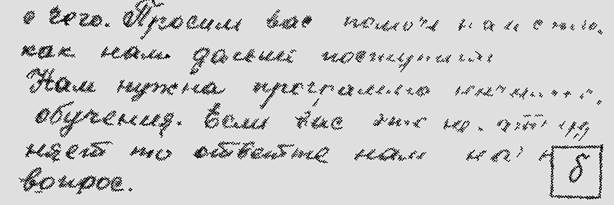 с чего. Просим вас помочь нам в этом.
как нам дальше поступить
Нам нужна программа
обучения. Если вас это не затруд
няет то ответьте нам на
вопрос.
б